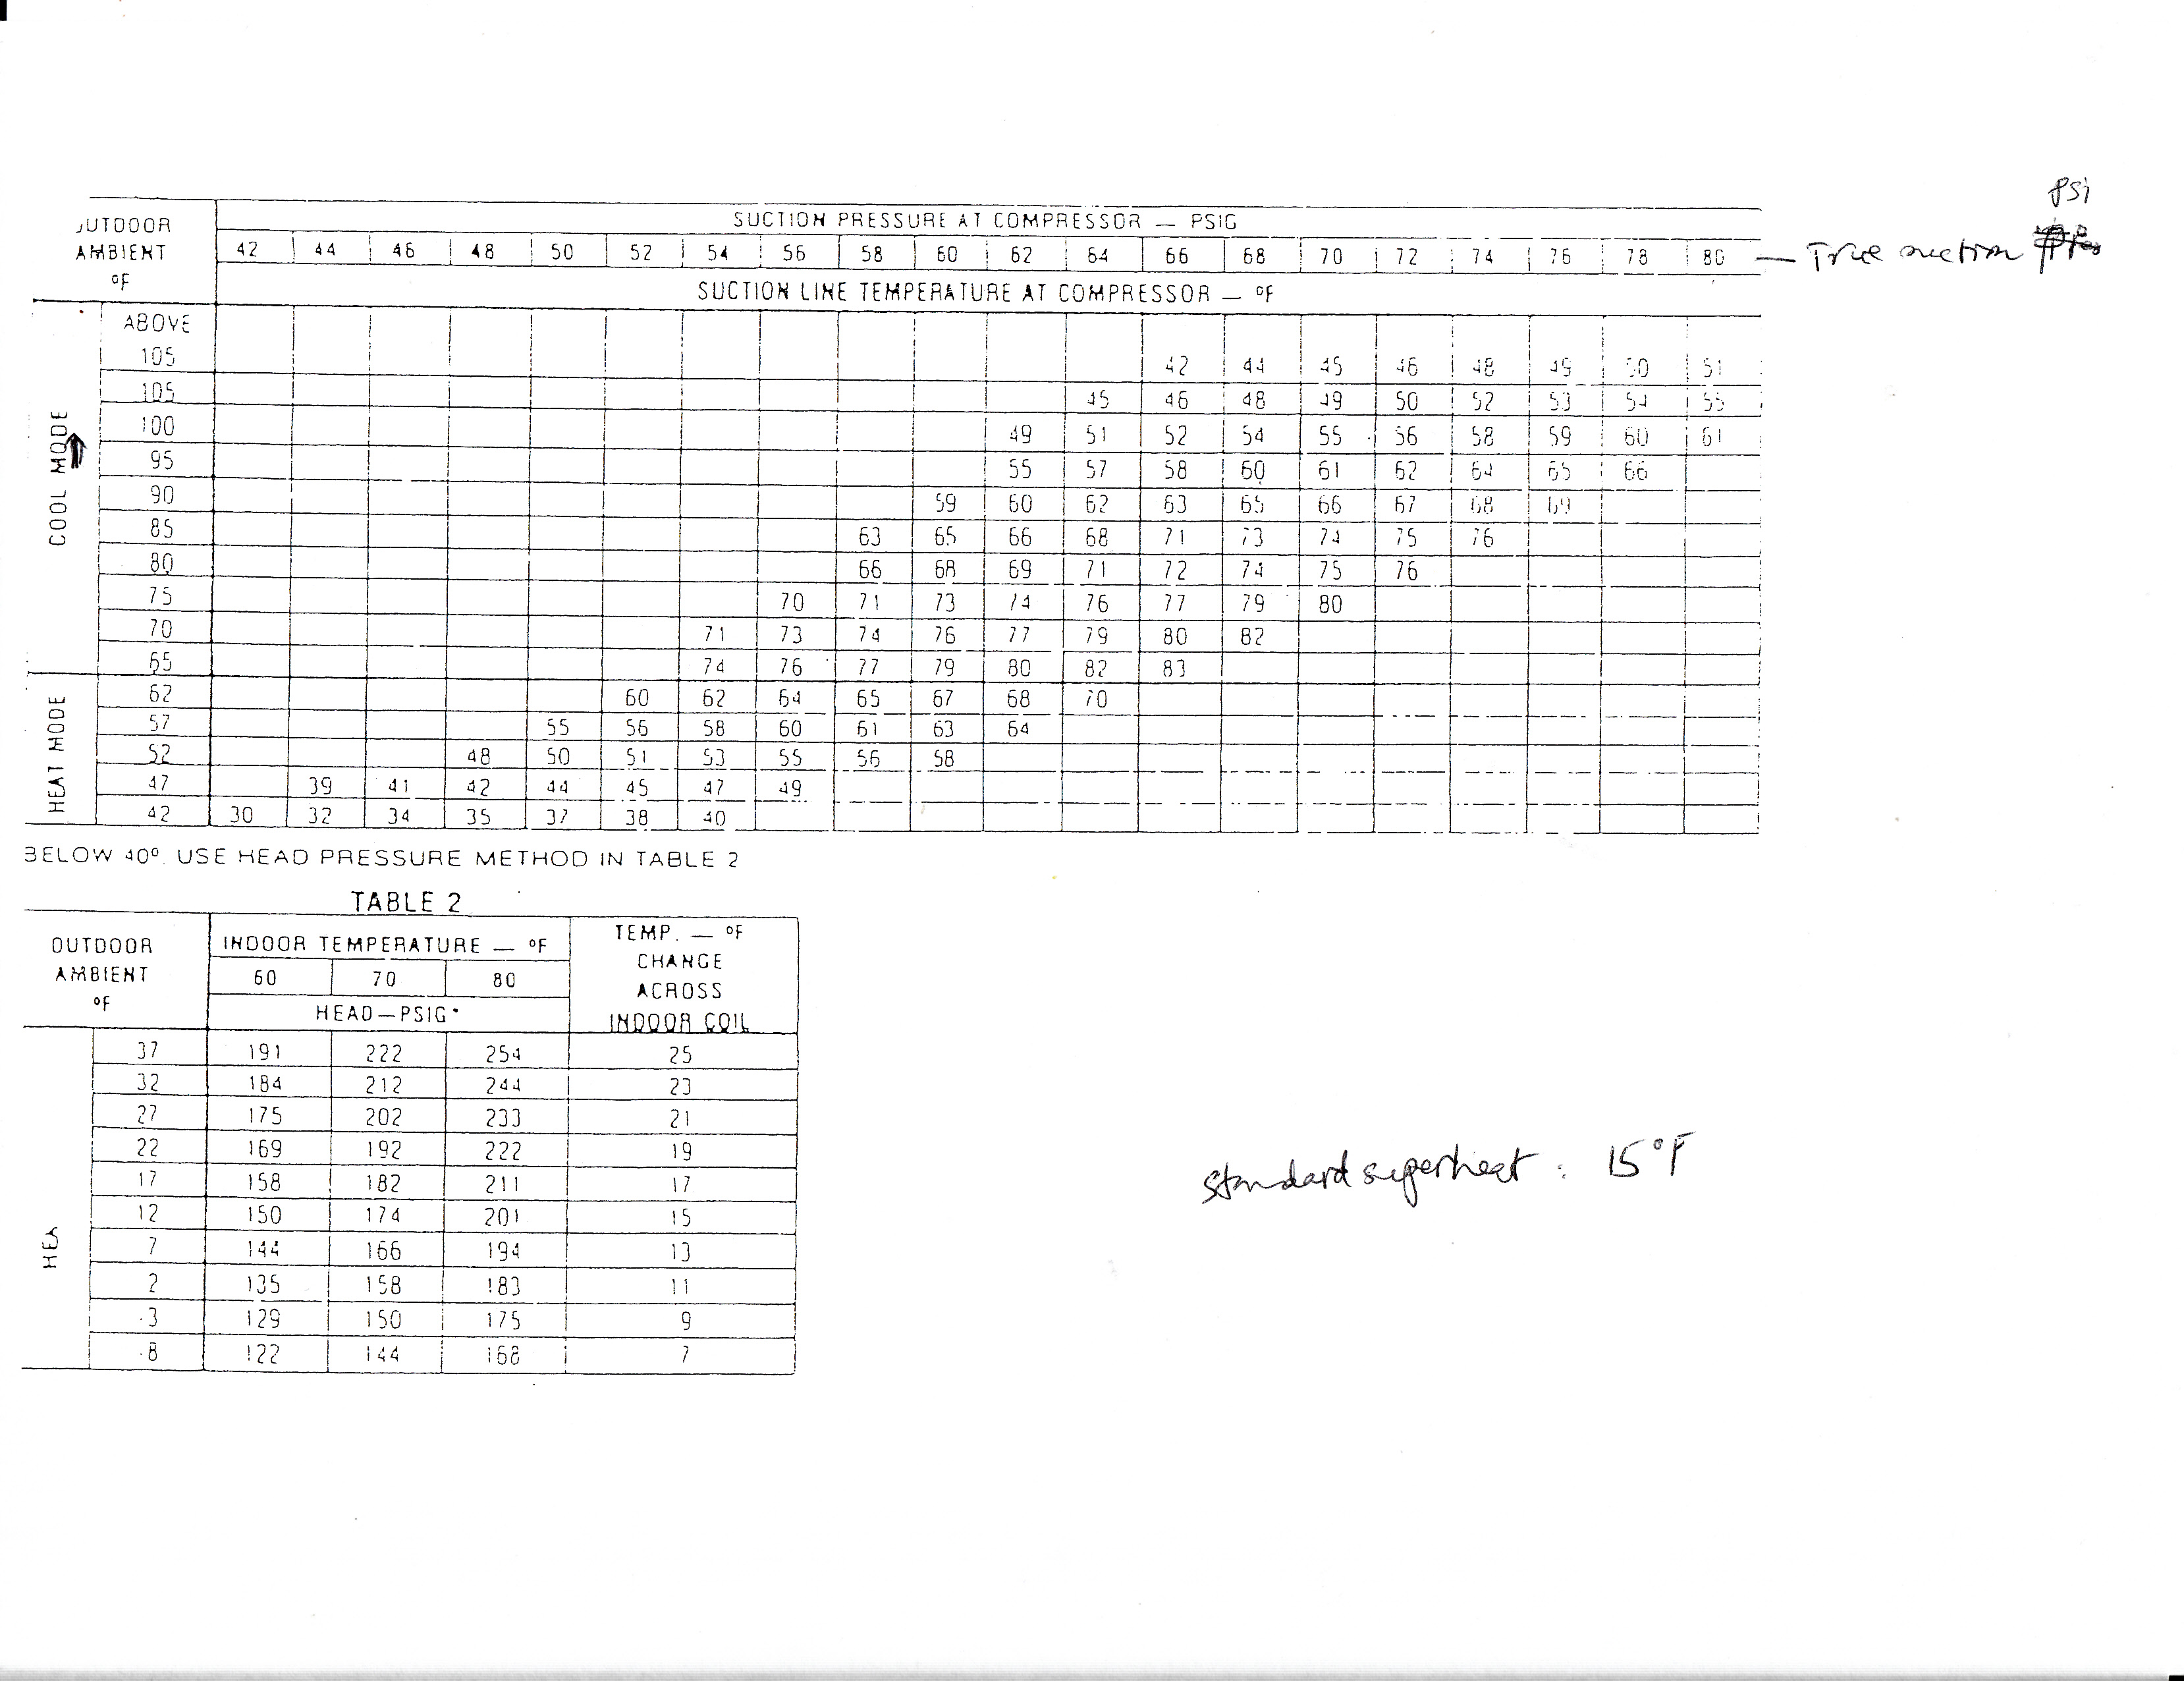 psi
SUCTION PRESSURE AT COMPRESSOR — PSIG
OUTDOOR
AMBIENT
°F
42 44 46 48 50 52 54 56 58 60 62 64 66 68 70 72 74 76 78 80 — True suction
SUCTION LINE TEMPERATURE AT COMPRESSOR — °F
COOL MODE
ABOVE
105 42 44 45 46 48 49 50 51
105 45 46 48 49 50 52 53 54 55
100 49 51 52 54 55 56 58 59 60 61
95 55 57 58 60 61 62 64 65 66
90 59 60 62 63 65 66 67 68 69
85 63 65 66 68 71 73 74 75 76
80 66 68 69 71 72 74 75 76
75 70 71 73 74 76 77 79 80
70 71 73 74 76 77 79 80 82
65 74 76 77 79 80 82 83
HEAT MODE
62 60 62 64 65 67 68 70
57 55 56 58 60 61 63 64
52 48 50 51 53 55 56 58
47 39 41 42 44 45 47 49
42 30 32 34 35 37 38 40
BELOW 40°. USE HEAD PRESSURE METHOD IN TABLE 2
TABLE 2
OUTDOOR
AMBIENT
°F
INDOOR TEMPERATURE — °F
60 70 80
HEAD—PSIG*
TEMP. — °F
CHANGE
ACROSS
INDOOR COIL
HEA
37 191 222 254 25
32 184 212 244 23
27 175 202 233 21
22 169 192 222 19
17 158 182 211 17
12 150 174 201 15
7 144 166 194 13
2 135 158 183 11
-3 129 150 175 9
-8 122 144 168 7
standard superheat : 15°F